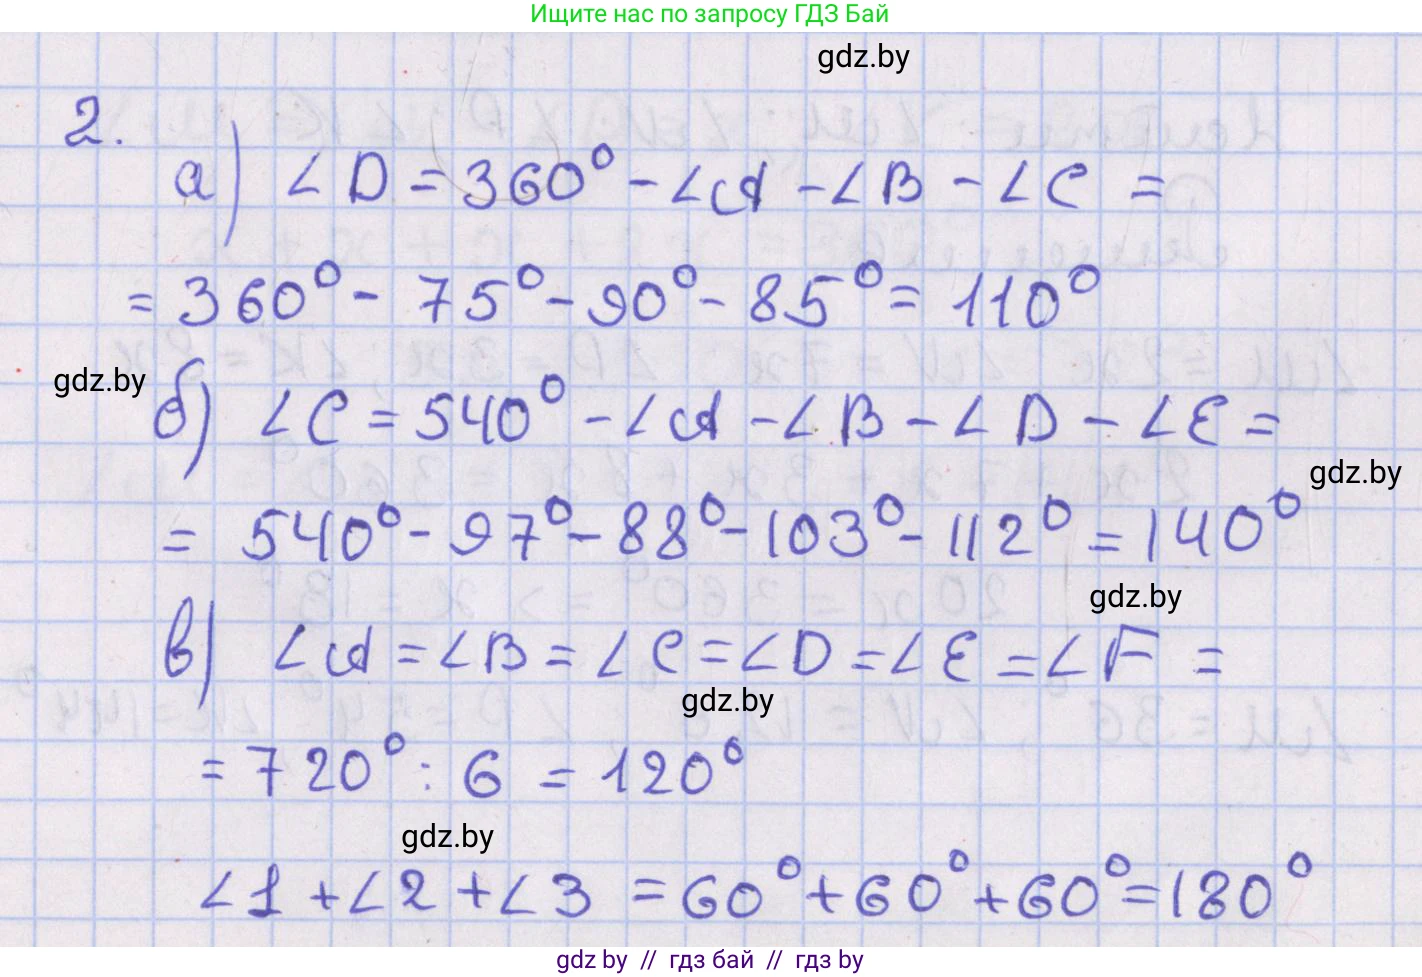 Ищите нас по запросу ГДЗ Бай
gdz.by
2.
а) ∠D = 360° - ∠A - ∠B - ∠C =
= 360° - 75° - 90° - 85° = 110°
gdz.by
б) ∠C = 540° - ∠A - ∠B - ∠D - ∠E =
gdz.by
= 540° - 97° - 88° - 103° - 112° = 140°
gdz.by
в) ∠A = ∠B = ∠C = ∠D = ∠E = ∠F =
gdz.by
= 720° : 6 = 120°
gdz.by
∠1 + ∠2 + ∠3 = 60° + 60° + 60° = 180°
gdz.by // гдз бай // гдз by